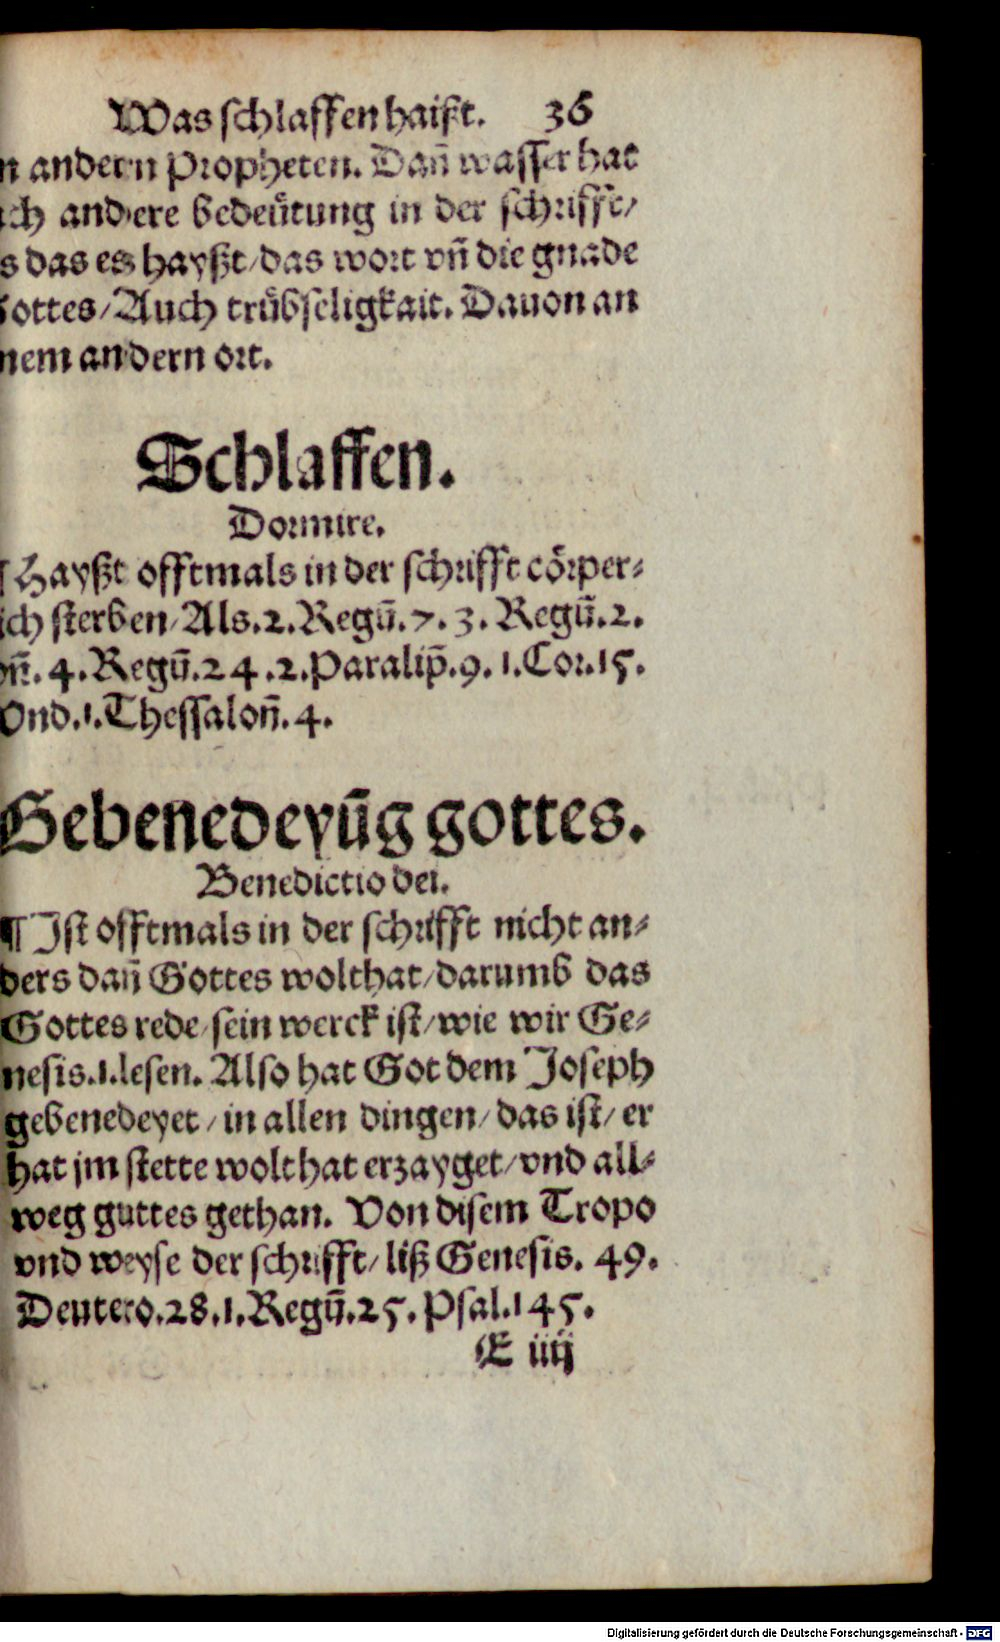 Was ſchlaffen haißt. 36
n andern Propheten. Dañ waſſer hat
ch andere bedeütung in der ſchrifft/
s das es hayßt/das wort vñ die gnade
Gottes/Auch trübſeligkait. Dauon an
nem andern ort.
Schlaffen.
Dormire.
¶ Hayßt offtmals in der ſchrifft cörper⸗
ich ſterben/Als.2.Regū.7.3.Regū.2.
vñ.4.Regū.24.2.Paralip̄.9.1.Cor.15.
Vnd.1.Theſſaloñ.4.
Gebenedeyūg gottes.
Benedictio dei.
¶ Iſt offtmals in der ſchrifft nicht an⸗
ders dañ Gottes wolthat/darumb das
Gottes rede/ſein werck iſt/wie wir Ge⸗
neſis.1.leſen. Alſo hat Got dem Joſeph
gebenedeyet/in allen dingen/das iſt/er
hat jm ſtette wolthat erzayget/vnd all⸗
weg guttes gethan. Von diſem Tropo
vnd weyſe der ſchrifft/liß Geneſis. 49.
Deutero.28.1.Regū.25.Pſal.145.
E iiij
Digitalisierung gefördert durch die Deutsche Forschungsgemeinschaft - DFG